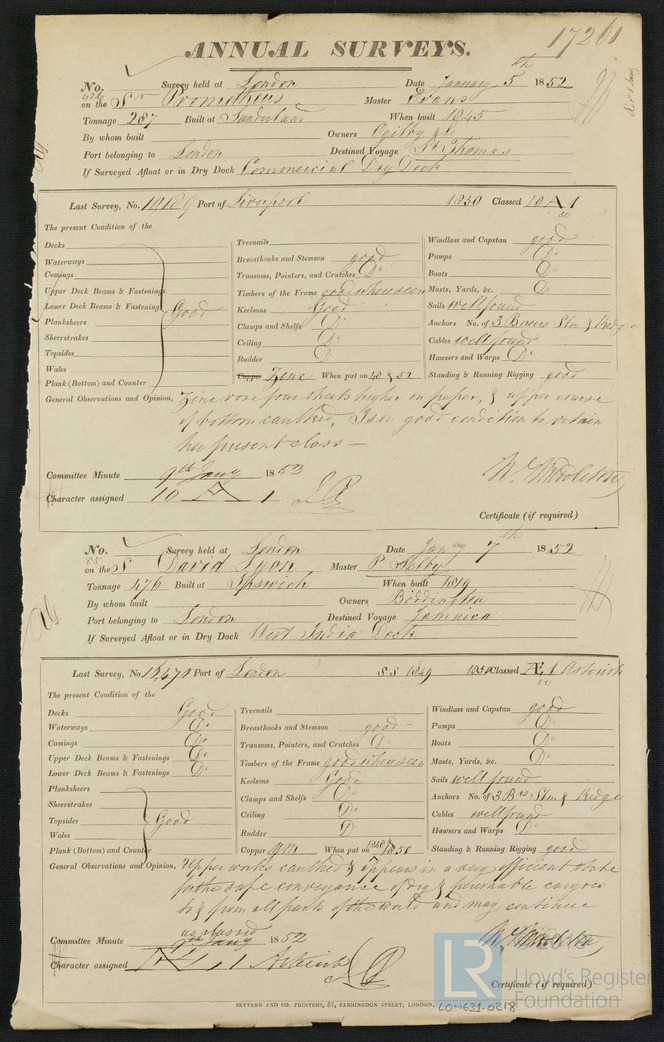 17261
ANNUAL SURVEYS.
No. 426 Survey held at London Date January 5th 1852
on the Sr Prometheus Master Evans
Tonnage 287 Built at Sunderland When built 1845
By whom built Owners Ogilby & Co
Port belonging to London Destined Voyage St Thomas
If Surveyed Afloat or in Dry Dock Commercial Dry Dock
Last Survey, No. Port of Liverpool 1850 Classed 10 A 1
50
The present Condition of the
Decks
Waterways
Comings
Upper Deck Beams & Fastenings
Lower Deck Beams & Fastenings Good
Planksheers
Sheerstrakes
Topsides
Wales
Plank (Bottom) and Counter
Treenails
Breasthooks and Stemson good
Transoms, Pointers, and Crutches Do
Timbers of the Frame good where seen
Keelsons Good
Clamps and Shelfs Do
Ceiling Do
Rudder
Copper Zinc When put on 48 & 52
Windlass and Capstan good
Pumps Do
Boats Do
Masts, Yards, &c. Do
Sails well found
Anchors No. of 3 Bowers Stm & Kedge
Cables well found
Hawsers and Warps Do
Standing & Running Rigging good
General Observations and Opinion, Zinc rose four sheets higher on paper, & upper course
of bottom caulked, Is in good condition to retain
her present class —
Committee Minute 9th Jany 1852
Character assigned 10 A 1
Wm Middleton
Certificate (if required)
No. 85 Survey held at London Date Jany 7th 1852
on the S David Lyon Master P Selby
Tonnage 476 Built at Ipswich When built 1819
By whom built Owners Boddington
Port belonging to London Destined Voyage Jamaica
If Surveyed Afloat or in Dry Dock West India Dock
Last Survey, No. 15,470 Port of London SS 1849 1850 Classed Æ 1 Asterisk
50
The present Condition of the
Decks Good
Waterways Do
Comings Do
Upper Deck Beams & Fastenings Do
Lower Deck Beams & Fastenings Do
Planksheers
Sheerstrakes
Topsides Good
Wales
Plank (Bottom) and Counter
Treenails
Breasthooks and Stemson good
Transoms, Pointers, and Crutches Do
Timbers of the Frame good where seen
Keelsons Good
Clamps and Shelfs Do
Ceiling Do
Rudder D
Copper YM When put on 1850
Windlass and Capstan good
Pumps Do
Boats Do
Masts, Yards, &c. Do
Sails well found
Anchors No. of 3 Brs Stm & Kedge
Cables well found
Hawsers and Warps Do
Standing & Running Rigging good
General Observations and Opinion, Upper works caulked & appears in a very efficient state
for the safe conveyance of dry & perishable cargoes
to & from all parts of the world and may continue
as classed
Committee Minute 9th Jany 1852
Character assigned
Wm Middleton
Certificate (if required)
SEYFANG AND CO. PRINTERS, 57, FARRINGDON STREET, LONDON.
LON631-0218
LR
Lloyd's Register
Foundation